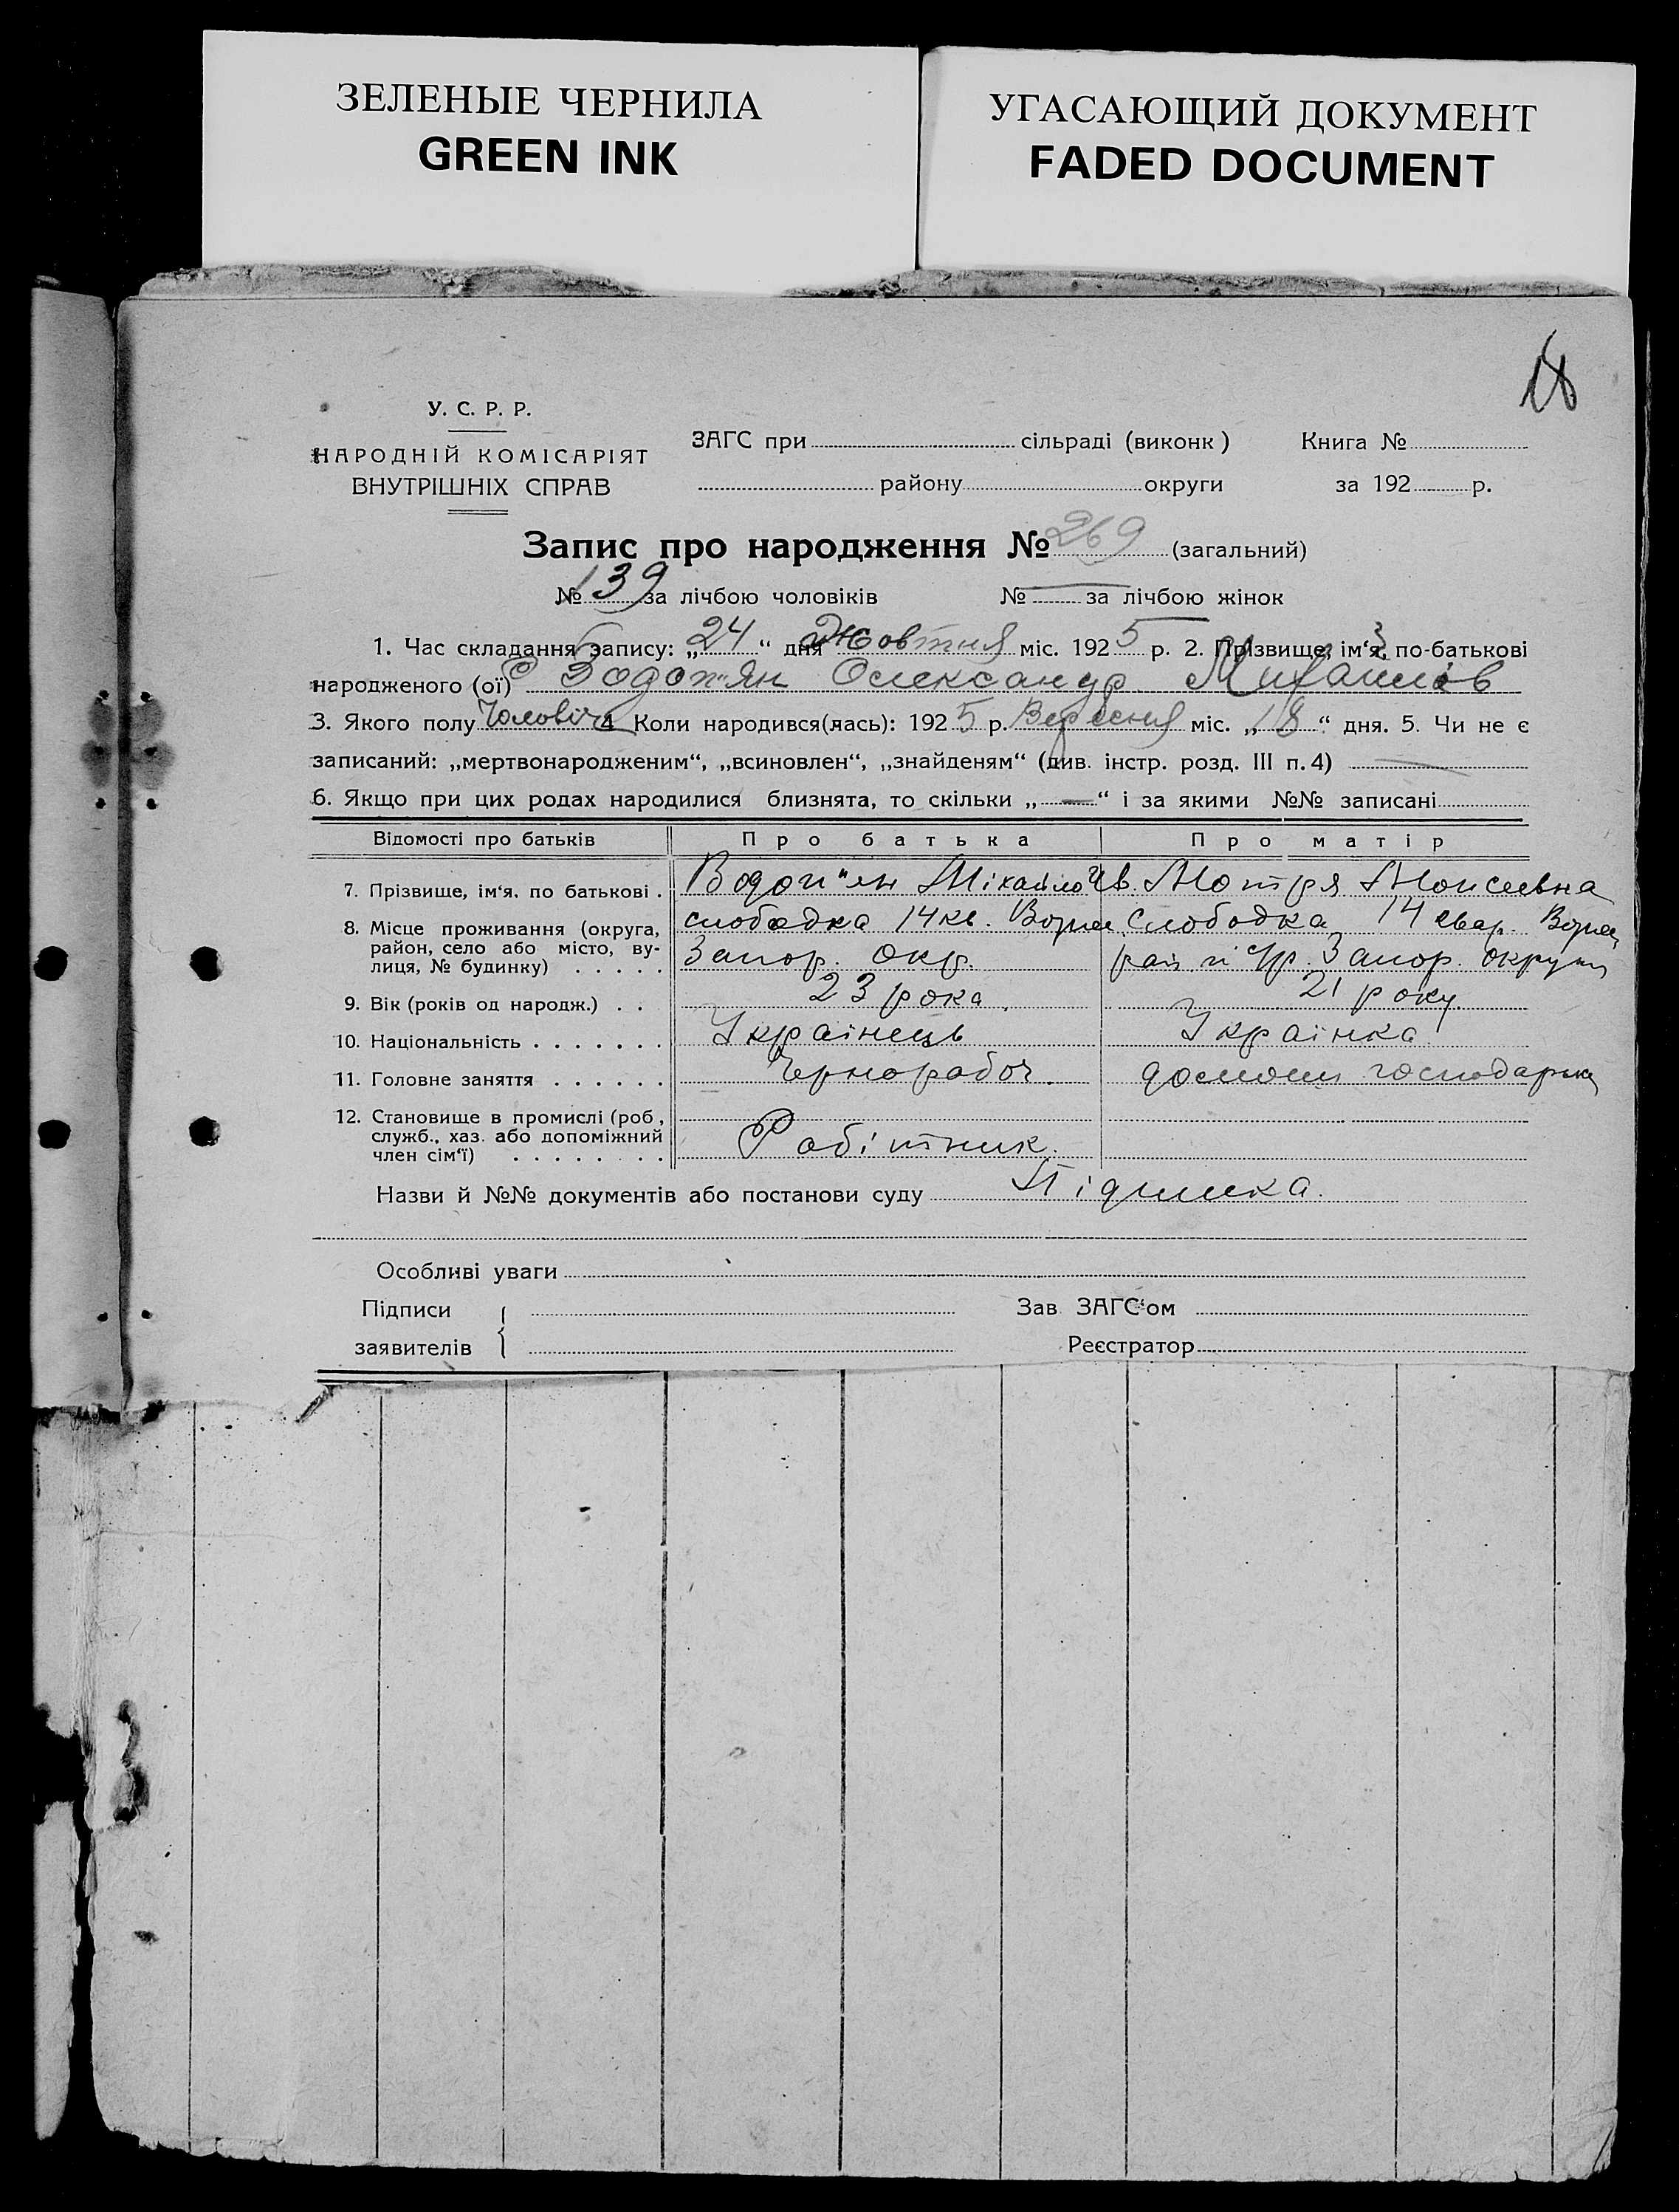 ЗЕЛЕНЫЕ ЧЕРНИЛА
GREEN INK
УГАСАЮЩИЙ ДОКУМЕНТ
FADED DOCUMENT
18
У. С. Р. Р.
НАРОДНІЙ КОМІСАРІЯТ
ВНУТРІШНІХ СПРАВ
ЗАГС при сільраді (виконк)
району округи
Книга №
за 192 р.
Запис про народження № 269 (загальний)
№ 139 за лічбою чоловіків № — за лічбою жінок
1. Час складання запису: „24“ дня Жовтня міс. 1925 р. 2. Прізвище, ім‘я, по-батькові
народженого (ої) Водоп"ян Олександр Михайлів
3. Якого полу Чоловіч 4. Коли народився(лась): 1925 р. Вересня міс. „18“ дня. 5. Чи не є
записаний: „мертвонародженим“, „всиновлен“, „знайденям“ (див. інстр. розд. III п. 4) —
6. Якщо при цих родах народилися близнята, то скільки „—“ і за якими №№ записані
Відомості про батьків Про батька Про матір
7. Прізвище, ім‘я, по батькові . Водоп"ян Міхайло Ив. Мотря Моисеевна
8. Місце проживання (округа, слободка 14 кв. Слободка 14 квар.
район, село або місто, ву-
лиця, № будинку) . . . . . Запор. Окр. Запор. округи
9. Вік (років од народж.) . . 23 рока 21 року
10. Національність . . . . . . . Українець Українка
11. Головне заняття . . . . . . Чернорабоч. господарка
12. Становище в промислі (роб,
служб., хаз. або допоміжний
член сім‘ї) . . . . . . . . Робітник.
Назви й №№ документів або постанови суду
Особливі уваги
Підписи
заявителів
Зав. ЗАГС‘ом
Реєстратор